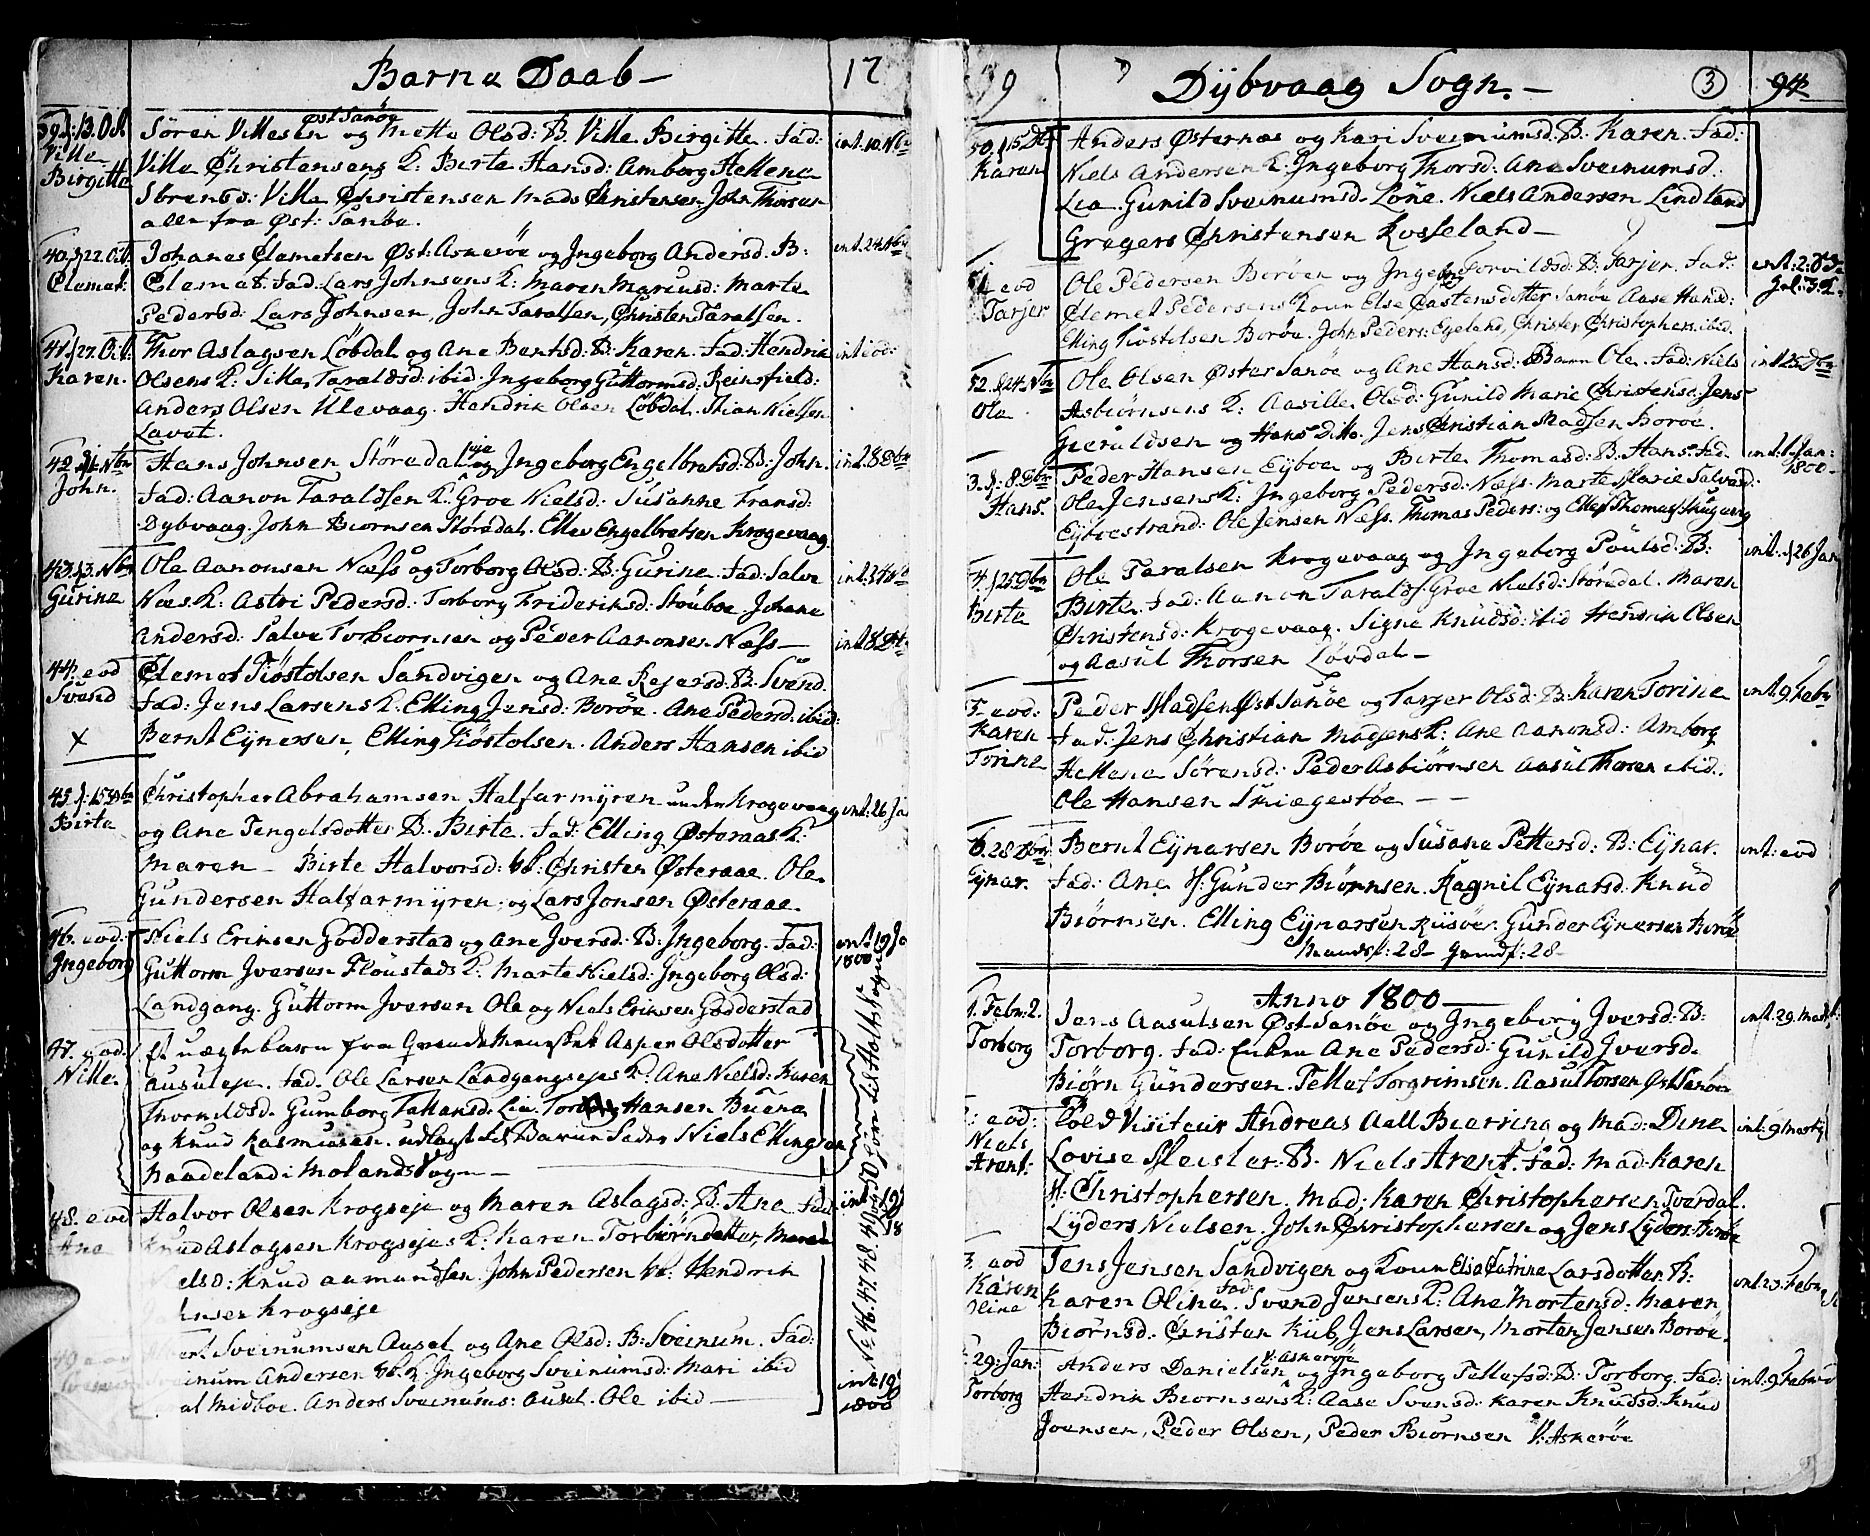 Barne Daab —
17
39. d: 13. Oct.
Ville
Birgitte
Øst Sanöe
Sören Villesen og Mette Olsd: B. Ville Birgitte. Fad:
Ville Christensens K: Berte Hansd: Amborg Hellene
Sörensd: Ville Christensen Mads Christensen John Thorsen
alle fra Øst: Sanöe.
int. 10. Nbr
40. d. 22. Oct.
Clemet:
Johanes Clemetsen Øst: Askeröe og Ingeborg Andersd: B:
Clemet: Fad. Lars Johnsens K: Maren Mariusd: Marte
Pedersd: Lars Johnsen, John Taralsen, Christen Taralsen.
int. 24 Nbr
41. d 27. Oct:
Karen.
Thor Aslagsen Löbdal og Ane Bentsd: B: Karen. Fad: Hendrik
Olsens K: Sille Taraldsd: ibid. Ingeborg Guttormsd: Reinsfield:
Anders Olsen Ulevaag. Hendrik Olsen Löbdal. Nielsen
Lavut.
int: eod:
42. d. Nbr
John.
Hans Johnsen Störedal og Ingeborg Engelbretsd: B: John.
Fad: Aanon Taraldsen K. Groe Nielsd: Susanne Fransd:
Dybvaag. John Biornsen Störedal. Ellev Engelbretsen Krogevaag
int. 8 Dbr
43. d 3. Nbr
Gurine
Ole Aanonsen Næss og Torborg Olsd: B: Gurine. Fad: Salve
Næs. K: Astri Pedersd: Torborg Frideriksd: Stöuboe. Johane
Andersd: Salve Torbiornsen og Peder Aanonsen Næss —
int. 24 Nbr
int. 8 Dbr
44. eod
Svend
×
Clemet Tiöstolsen Sandvigen og Ane Rejersd: B. Svend.
Fad: Jens Larsens K. Elling Jensd: Boröe. Ane Pedersd. ibid:
Bernt Eynersen, Elling Tiöstolsen. Anders Hansen ibid
45. d: 15 Dbr
Birte
Christopher Abrahamsen Halfarmyren under Krogevaag
og Ane Tengelsdotter B. Birte. Fad: Elling Østeraas K:
Maren — Birte Halvorsd: Christen Østeraae. Ole
Gundersen Halfarmyren, og Lars Jonsen Østeraae.
int: 26 Ja
46. eod:
Ingeborg
Niels Eriksen Godderstad og Ane Iversd: B: Ingeborg. Fad:
Guttorm Iversen Flöustads K: Marte Nielsd: Ingeborg Olsd:
Landgang. Guttorm Iversen Ole og Niels Eriksen Godderstad
int: 19 Ja
1800
47. eod
Nille.
Et uægte barn fra Qvindemennsket Aspen Olsdotter
Ausuleje. Fad. Ole Larsen Landgangsejes K: Ane Nielsd: Karen
Thorvildsd. Gumborg Tallansd. Lia. Hansen Buene
og Knud Rasmusen. udlagt til Barne Fader Niels Ellingsen
Haadeland i Molands Sogn —
No 46. 47. 48. 49 og 50 höre til Holts Sogn
48. eod
Ane
Halvor Olsen Krogseje og Maren Aslagsd: B: Ane Fad:
Knud Aslagsen Krogsejes K: Karen Torbiörndotter, Maren
elsd: Knud Aamundsen. John Pedersen Hendrik
ensen Krogseje
int 19
18
49 eod
Sveinum
Sveinumsen Ausel og Ane Olsd: B: Sveinum. Fad:
Sveinum Andersen K: Ingeborg Sveinumsd: Mari ibid
al Midboe. Anders Sveinums: Ausel. Ole ibid —
int 19
1800
99
Dÿbvaag Sogn. —
3
94
50. d 15 Dbr
Karen
Anders Østernæs og Kari Sveinumsd: B: Karen. Fad:
Niels Andersen K: Ingeborg Thorsd: Ane Sveinumsd:
Lia. Gunild Sveinumsd. Löne. Niels Andersen Lindland
Gregers Christensen Kosseland —
51 eod
Tarjer
Ole Pedersen Boröen og Ingeborg Torvildsd: B: Tarjer. Fad:
Clemet Pedersens Kone Else Castensdotter Sanöe Aase Hansd:
Elling Tiöstelsen Boröe. John Peders: Egeland, Christen Christophers: ibid.
int: 2: Dbr
52. d 24. Nbr
Ole
Ole Olsen Øster Sanöe og Ane Hansd: Barn Ole. Fad: Niels
Asbiörnsens K: Aasille Olsd: Gunild Marie Christensd: Jens
Gieruldsen og Hans Ditto. Jens Christian Madsen Boröe.
int. 25 Dbr
3. d: 8. Dbr
Hans.
Peder Hansen Eyboe og Birte Thomasd: B. Hans. Fad:
Ole Jensens K: Ingeborg Pedersd: Næss. Marte Marie Salvesd:
Eyboestrand: Ole Jensen Næss. Thomas Peders: og Ellef Thomas:
int. 1 Jan:
1800 —
4. d 25 Dbr
Birte
Ole Taralsen Krogevaag og Ingeborg Poulsd: B:
Birte. Fad: Aanon Taralds: Groe Nielsd: Störedal. Maren
Christensd: Krogevaag. Signe Knudsd: ibid Hendrik Olsen
og Aasul Thorsen Lövdal —
int. d 26 Jan
5. eod:
Karen
Torine
Peder Madsen Øst Sanöe og Tarjer Olsd: B: Karen Torine
Fad. Jens Christian Madsens K: Ane Aanonsd: Amborg
Hellene Sörensd: Peder Asbiörnsen Aasul Thorsen ibid:
Ole Hansen Skiegestöe — —
int. 9. Febr
6. 28 Dbr
Eynar.
Bernt Eynarsen Boröe og Susane Pettersd: B: Eynar.
Fad: Ane H: Gunder Biörnsen. Ragnil Eynarsd: Knud
Biörnsen. Elling Eynarsen Riisöe. Gunder Eynersen Boröe
int: eod
Mandk: 28 — Qvindk: 28 —
Anno 1800 —
1. Febr: 2.
Torborg
Jens Aasulsen Øst Sanöe og Ingeborg Iversd: B:
Torborg. Fad: Enken Ane Pedersd: Gunild Iversd.
Biörn Gundersen. Tellef Torgrimsen. Aasul Torsen Øst Sanöe
int. 29. Marti:
2. eod:
Niels
Arent:
Told Visiteur Andreas Aall Biering og Mad: Dine
Lovise Meisler. B. Niels Arent. Fad: Mad: Karen
H. Christophersen. Mad: Karen Christophersen Tverdal.
Lyders Nielsen, John Christophersen og Jens Lyders: Boröe
int. 9 Martij
3. eod
Karen
Oline
Jens Jensen Sandvigen og Kone Elsa Catrine Larsdotter. B:
Karen Oline. Fad: Svend Jensens K: Ane Mortensd: Maren
Biörnsd. Christen Kiib, Jens Larsen, Morten Jensen Boröe.
int. 23. Febr.
29. Jan:
Torborg
V: Askeröe
Anders Danielsen og Ingeborg Tellefsd: B: Torborg. Fad:
Hendrik Biornsens K: Aase Svensd: Karen Knudsd: Knud
Joensen, Peder Olsen, Peder Biornsen V. Askeröe
int. 9. Febr